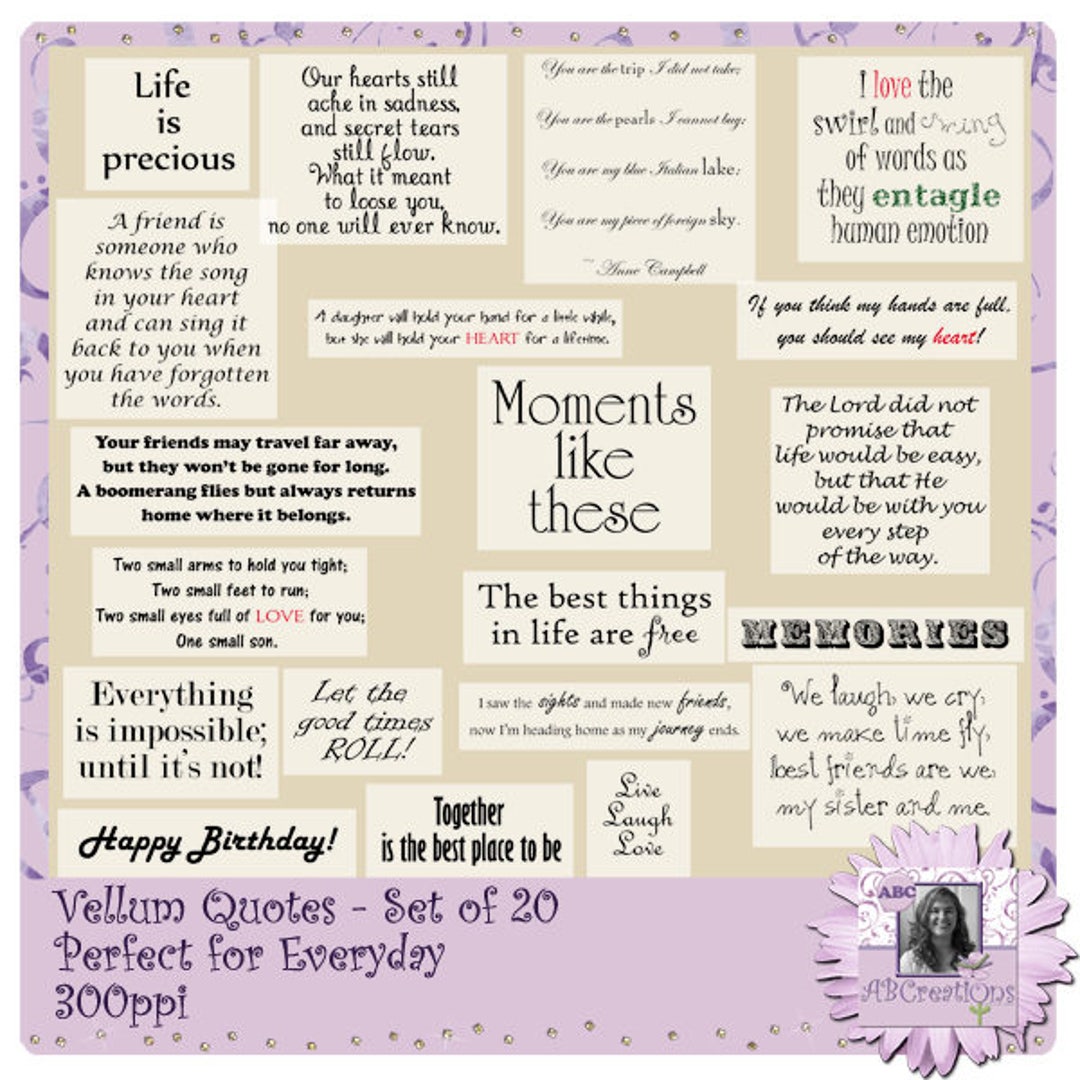 Life
is
precious
Our hearts still
ache in sadness,
and secret tears
still flow.
What it meant
to loose you,
no one will ever know.
You are the trip I did not take;
You are the pearls I cannot buy;
You are my blue Italian lake;
You are my piece of foreign sky.
~ Anne Campbell
I love the
swirl and swing
of words as
they entagle
human emotion
A friend is
someone who
knows the song
in your heart
and can sing it
back to you when
you have forgotten
the words.
A daughter will hold your hand for a little while,
but she will hold your HEART for a lifetime.
If you think my hands are full,
you should see my heart!
Moments
like
these
The Lord did not
promise that
life would be easy,
but that He
would be with you
every step
of the way.
Your friends may travel far away,
but they won't be gone for long.
A boomerang flies but always returns
home where it belongs.
Two small arms to hold you tight;
Two small feet to run;
Two small eyes full of LOVE for you;
One small son.
The best things
in life are free
MEMORIES
Everything
is impossible;
until it's not!
Let the
good times
ROLL!
I saw the sights and made new friends,
now I'm heading home as my journey ends.
We laugh, we cry,
we make time fly,
best friends are we,
my sister and me.
Happy Birthday!
Together
is the best place to be
Live
Laugh
Love
Vellum Quotes - Set of 20
Perfect for Everyday
300ppi
ABC
ABCreations